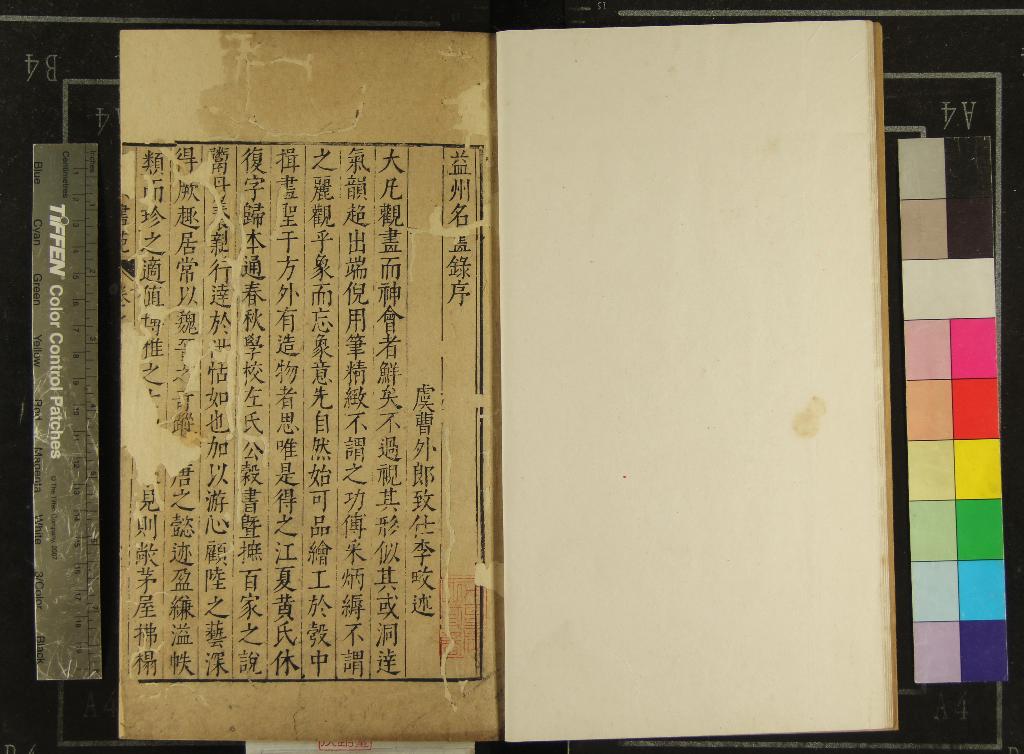 益州名畫錄序
虞曹外郎致仕李畋述
大凡觀畫而神會者鮮矣不過視其形似其或洞達
氣韻超出端倪用筆精緻不謂之功傅采炳縟不謂
之麗觀乎象而忘象意先自然始可品繪工於彀中
揖畫聖于方外有造物者思唯是得之江夏黃氏休
復字歸本通春秋學校左氏公穀書曁摭百家之說
鬻丹養親行達於世恬如也加以游心顧陸之藝深
得厥趣居常以魏晉之奇蹤唐之懿迹盈縑溢帙
類而珍之適值博雅之 見則敞茅屋拂榻
TIFFEN Color Control Patches
© The Tiffen Company, 2007
Inches
Centimetres
Blue
Cyan
Green
Yellow
Red
Magenta
White
3/Color
Black
B4
A4
A4
A4
A4